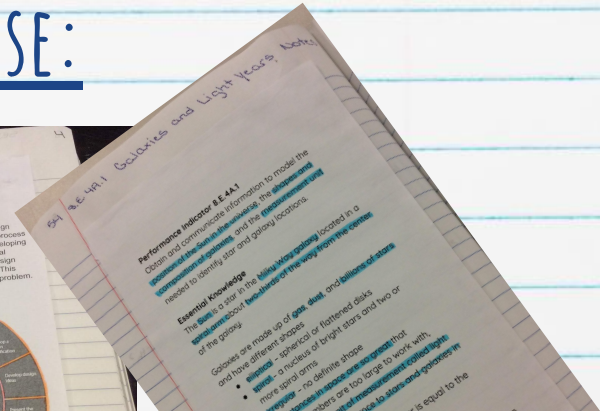 SE:
4
54 8.E.4A.1 Galaxies and Light Years Notes
Performance Indicator 8.E.4A.1
Obtain and communicate information to model the
position of the Sun in the universe, the shapes and
composition of galaxies, and the measurement unit
needed to identify star and galaxy locations.
Essential Knowledge
The Sun is a star in the Milky Way galaxy located in a
spiral arm about two-thirds of the way from the center
of the galaxy.
Galaxies are made up of gas, dust, and billions of stars
and have different shapes
• elliptical - spherical or flattened disks
• spiral - a nucleus of bright stars and two or
more spiral arms
regular - no definite shape
tances in space are so great that
mbers are too large to work with,
t of measurement called light
nce to stars and galaxies in
r is equal to the
gn
process
eloping
al
sign
This
problem.
Develop design
ideas